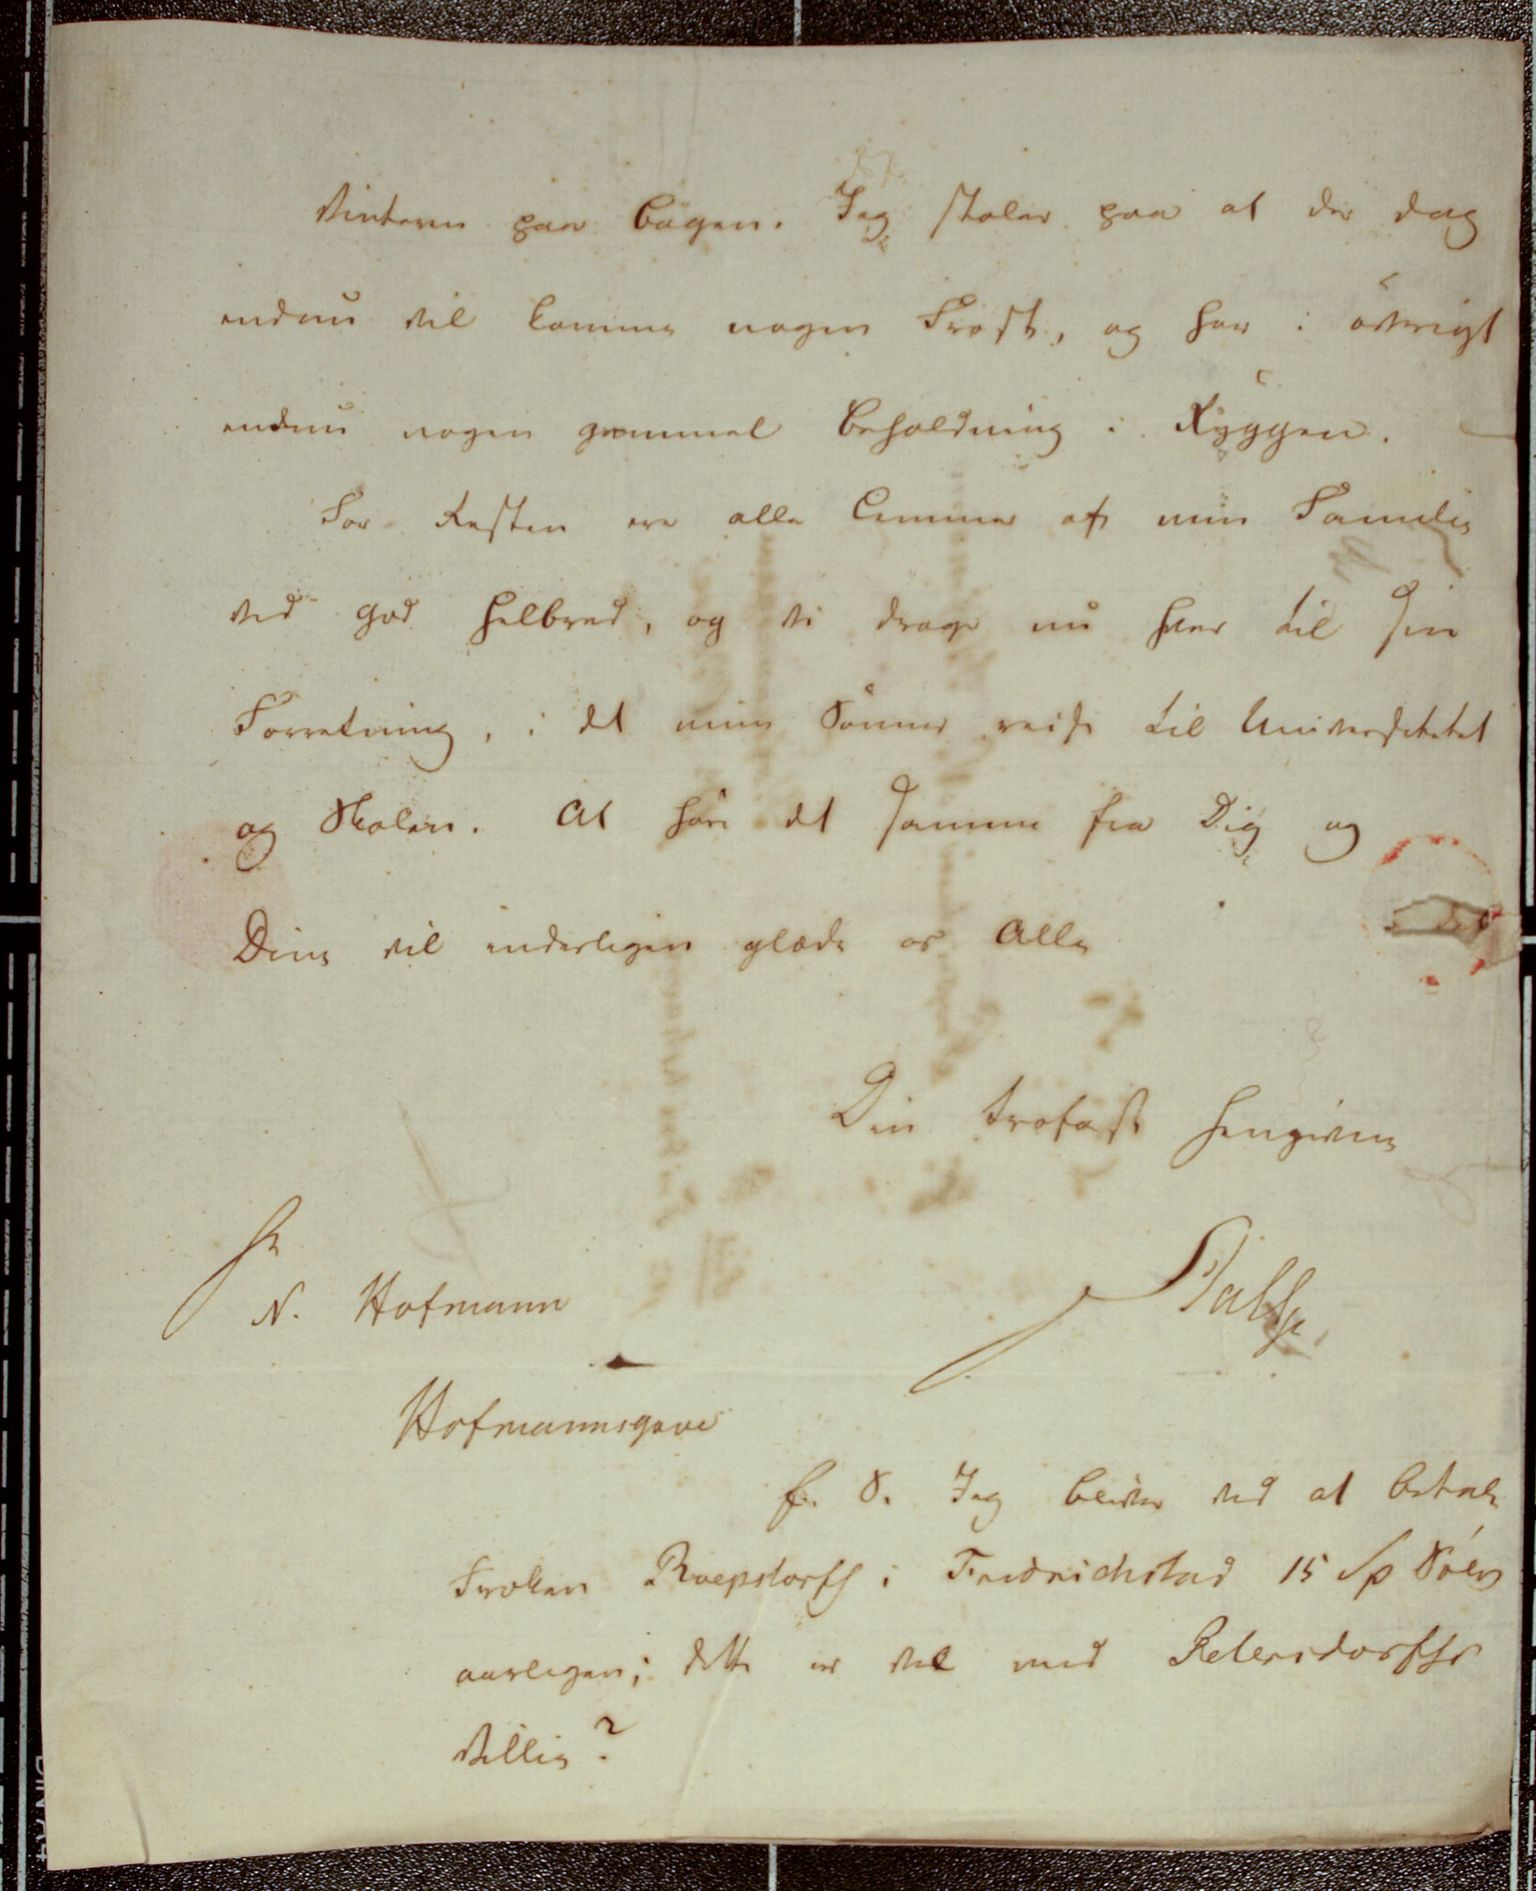 Vinteren paa Bagen. Jeg stoler paa at der dog
endnu vil komme nogen Frost, og har i øvrigt
endnu nogen gammel Beholdning i Ryggen.
For Resten ere alle Lemmer af min Familie
ved god Helbred, og vi drage nu hver til sin
Forretning, i det mine Sønner reise til Universitetet
og Skolen. At høre det samme fra Dig og
Dine vil inderligen glæde os Alle
Din trofast hengivne
Hr
N. Hofmann
Hofmannsgave
E. S. Jeg bliver ved at betale
Frøken Roepstorff i Fredrichstad 15 Sp Sølv
aarligen; dette er vel med Petersdorffs
Villie?